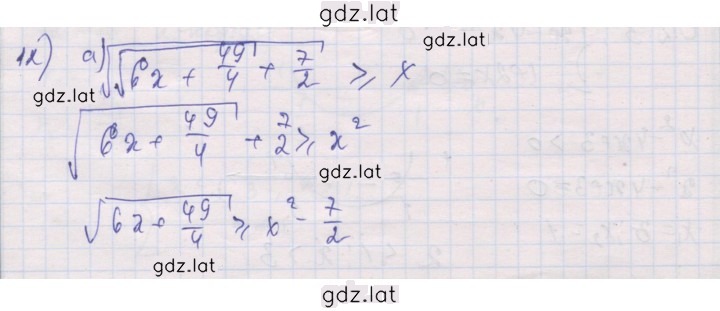 gdz.lat
12) а) √(√(6x + 49/4) + 7/2) ⩾ x
gdz.lat
√(6x + 49/4) + 7/2 ⩾ x²
gdz.lat
√(6x + 49/4) ⩾ x² - 7/2
gdz.lat
gdz.lat